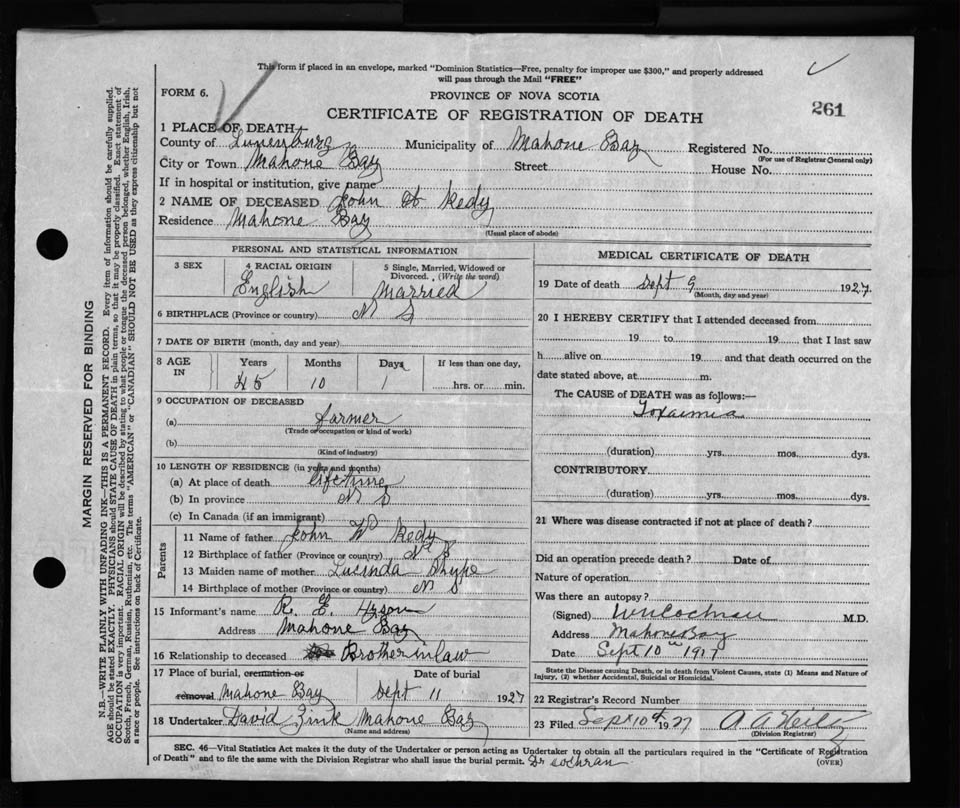 This form if placed in an envelope, marked "Dominion Statistics—Free, penalty for improper use $300," and properly addressed
will pass through the Mail "FREE"
FORM 6.
PROVINCE OF NOVA SCOTIA
261
CERTIFICATE OF REGISTRATION OF DEATH
1 PLACE OF DEATH
County of Lunenburg Municipality of Mahone Bay Registered No.
(For use of Registrar General only)
City or Town Mahone Bay Street House No.
If in hospital or institution, give name
2 NAME OF DECEASED John W Kedy
Residence Mahone Bay
(Usual place of abode)
PERSONAL AND STATISTICAL INFORMATION
3 SEX 4 RACIAL ORIGIN 5 Single, Married, Widowed or Divorced. (Write the word)
English Married
6 BIRTHPLACE (Province or country) N S
7 DATE OF BIRTH (month, day and year)
8 AGE IN Years Months Days If less than one day,
45 10 1 hrs. or min.
9 OCCUPATION OF DECEASED
(a) farmer
(Trade or occupation or kind of work)
(b)
(Kind of industry)
10 LENGTH OF RESIDENCE (in years and months)
(a) At place of death lifetime
(b) In province N S
(c) In Canada (if an immigrant)
Parents
11 Name of father John W Kedy
12 Birthplace of father (Province or country) N S
13 Maiden name of mother Lucinda
14 Birthplace of mother (Province or country) N S
15 Informant's name R. E. Hyson
Address Mahone Bay
16 Relationship to deceased Brother in law
17 Place of burial, cremation or removal Mahone Bay Date of burial Sept 11 1927
18 Undertaker David Zink Mahone Bay
(Name and address)
MEDICAL CERTIFICATE OF DEATH
19 Date of death Sept 9 1927
(Month, day and year)
20 I HEREBY CERTIFY that I attended deceased from
19 to 19 that I last saw
h alive on 19 and that death occurred on the
date stated above, at m.
The CAUSE of DEATH was as follows:—
Toxaemia
(duration) yrs. mos. dys.
CONTRIBUTORY.
(duration) yrs. mos. dys.
21 Where was disease contracted if not at place of death?
Did an operation precede death? Date of
Nature of operation
Was there an autopsy?
(Signed) Cochran M.D.
Address Mahone Bay
Date Sept 10th 1917
State the Disease causing Death, or in death from Violent Causes, state (1) Means and Nature of
Injury, (2) whether Accidental, Suicidal or Homicidal.
22 Registrar's Record Number
23 Filed Sept 10th 1927
(Division Registrar)
SEC. 46—Vital Statistics Act makes it the duty of the Undertaker or person acting as Undertaker to obtain all the particulars required in the "Certificate of Registration
of Death" and to file the same with the Division Registrar who shall issue the burial permit. Dr Cochran (OVER)
MARGIN RESERVED FOR BINDING
N.B.—WRITE PLAINLY WITH UNFADING INK—THIS IS A PERMANENT RECORD. Every item of information should be carefully supplied.
AGE should be stated EXACTLY. PHYSICIANS should STATE CAUSE OF DEATH in plain terms, so that it may be properly classified. Exact statement of
OCCUPATION is very important. RACIAL ORIGIN will be described by stating to what people or tongue the deceased person belonged, whether English, Irish,
Scotch, French, German, Russian, Ruthenian, etc. The terms "AMERICAN" or "CANADIAN" SHOULD NOT BE USED as they express citizenship but not
a race or people. See instructions on back of Certificate.